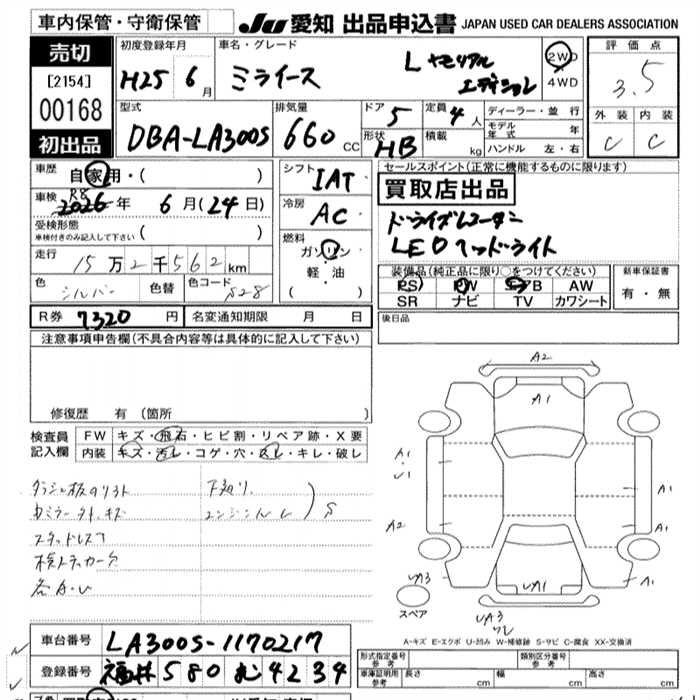 車内保管・守衛保管
JU 愛知 出品申込書 JAPAN USED CAR DEALERS ASSOCIATION
売切
[2154]
00168
初出品
初度登録年月
H25 6月
車名・グレード
ミライース
L メモリアル
エディション
2WD
4WD
評価点
3.5
外装 内装
C C
型式
DBA-LA300S
排気量
660 CC
ドア
5
形状
HB
定員
4人
積載
kg
ディーラー・並行
モデル年式 年
ハンドル 左・右
車歴
自家用・( )
車検 R8
2026年 6月(24日)
受検形態
車検付きのみ記入して下さい ( )
走行
15万2千562km
色
シルバー
色替
色コード
S28
シフト
IAT
冷房
AC
燃料
ガソリン
軽・油
( )
セールスポイント(正常に機能するものに限ります)
買取店出品
ドライブレコーダー
LEDヘッドライト
装備品(純正品に限り○をつけてください)
PS PW エアB AW
SR ナビ TV カワシート
新車保証書
有・無
R券 7320円
名変通知期限 月 日
後日品
注意事項申告欄(不具合内容等は具体的に記入して下さい)
修復歴 有(箇所 )
検査員
記入欄
FW キズ・飛石・ヒビ割・リペア跡・X要
内装 キズ・汚レ・コゲ・穴・スレ・キレ・破レ
下廻り
S
各A・U
A2
A1
A1
U1
A2
A1
A1
A1
UA3
UA1
UA3
スペア
A-キズ E-エクボ U-凹み W-補修跡 S-サビ C-腐食 XX-交換済
車台番号 LA300S-1170217
登録番号 福井 580 む 4234
形式指定番号
参考
類別区分番号
参考
車庫証明用
参考
長さ cm 幅 cm 高さ cm